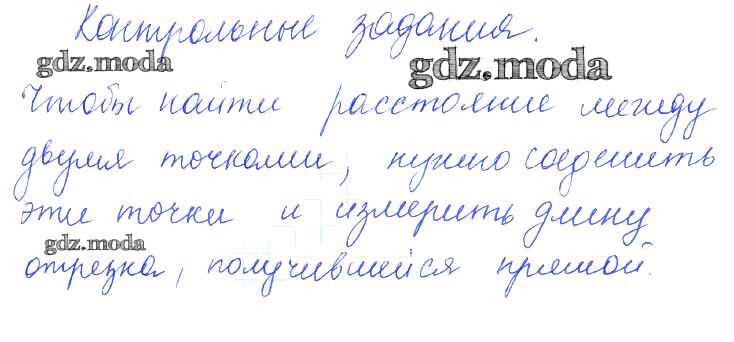 Контрольные задания.
gdz.moda gdz.moda
Чтобы найти расстояние между
двумя точками, нужно соединить
эти точки и измерить длину
gdz.moda
отрезка, получившейся прямой.